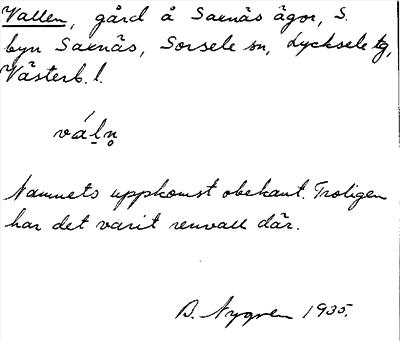 Vallen, gård å Saxnäs ägor, S.
byn Saxnäs, Sorsele sn, Lycksele tg,
Västerb. l.
váḷn̥
Namnets uppkomst obekant. Troligen
har det varit renvall där.
B. Nygren 1935.